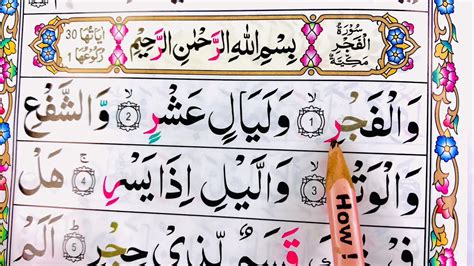 سُورَةُ الْفَجْرِ مَكِّيَّةٌ
بِسْمِ اللهِ الرَّحْمٰنِ الرَّحِيْمِ
اٰيَاتُهَا 30
رُكُوْعُهَا 1
وَالْفَجْرِ ۝1 وَلَيَالٍ عَشْرٍ ۝2 وَّالشَّفْعِ
وَالْوَتْرِ ۝3 وَالَّيْلِ اِذَا يَسْرِ ۝4 هَلْ
فِيْ قَسَمٌ لِّذِيْ حِجْرٍ ۝5 اَلَمْ
How !